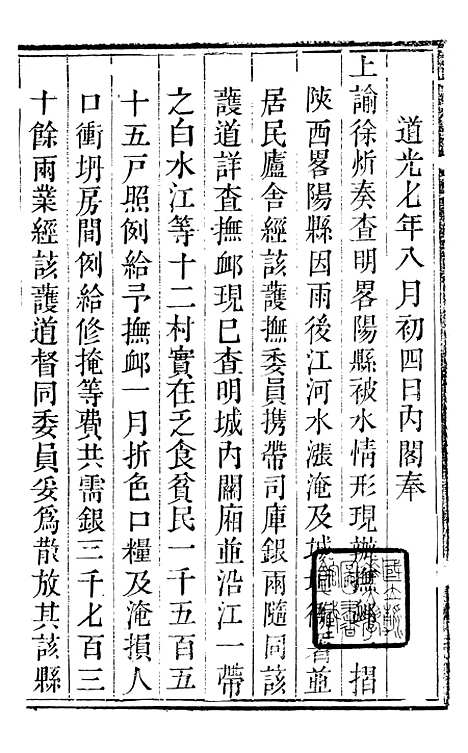 道光七年八月初四日內閣奉
上諭徐炘奏查明畧陽縣被水情形現辦撫䘏一摺
陝西畧陽縣因雨後江河水漲淹及城垣衙署並
居民廬舍經該護撫委員攜帶司庫銀兩隨同該
護道詳查撫䘏現已查明城內關廂並沿江一帶
之白水江等十二村實在乏食貧民一千五百五
十五戶照例給予撫䘏一月折色口糧及淹損人
口衝坍房間例給修掩等費共需銀三千七百三
十餘兩業經該護道督同委員妥爲散放其該縣